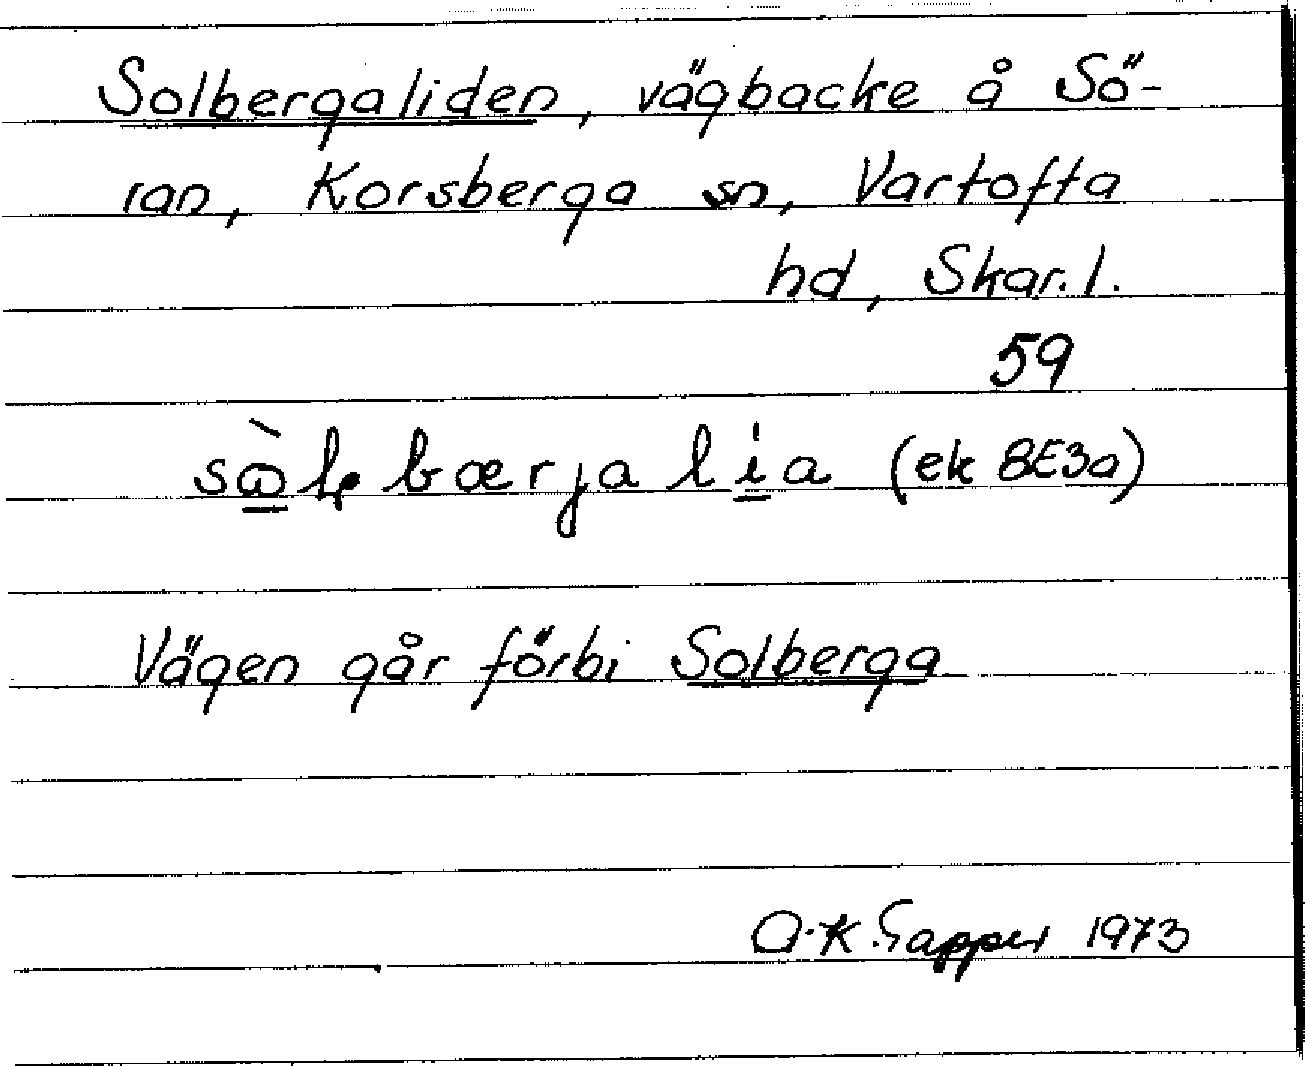 Solbergaliden, vägbacke å Sö-
ran, Korsberga sn, Vartofta
hd, Skar. l.
59
bærja lia (ek 8E3a)
Vägen går förbi Solberga
A.K. 1973